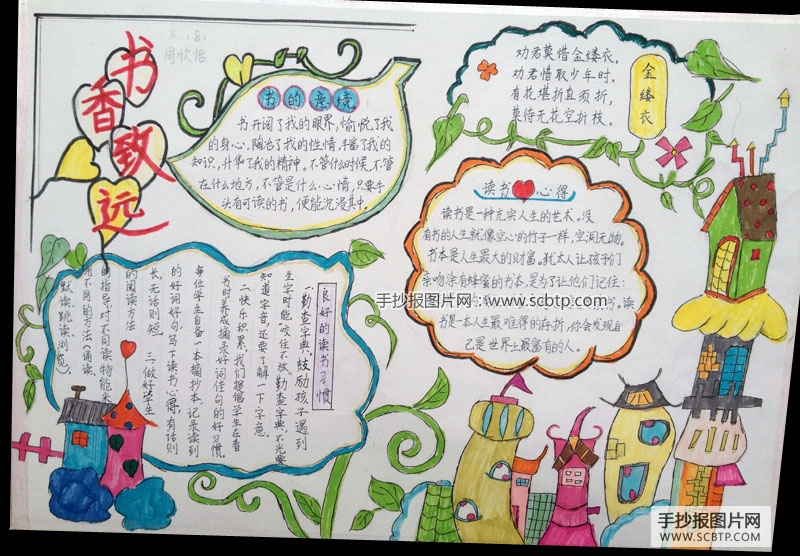 书香致远
五（8）
书的意境
书开阔了我的眼界，愉悦了我
的身心，陶冶了我的性情，丰富了我的
知识，升华了我的精神。不管什么时候，不管
在什么地方，不管是什么心情，只要手
头有可读的书，便能沉浸其中。
劝君莫惜金缕衣，
劝君惜取少年时，
有花堪折直须折，
莫待无花空折枝。
金缕衣
读书心得
读书是一种充实人生的艺术。没
有书的人生就像空心的竹子一样，空洞无物。
书本是人生最大的财富。犹太人让孩子们
亲吻涂有蜂蜜的书本，是为了让他们记住：
书。读
书是一本人生最难得的存折，你会发现自
己是世界上最富有的人。
良好的读书习惯
一勤查字典。鼓励孩子遇到
生字时能咬住不放，勤查字典，不光要
知道字音，还要了解一下字意。
二快乐积累。我们提倡学生在看
书时养成摘录好词佳句的好习惯。
每位学生自备一本摘抄本，记录读到
的好词好句，写下读书心得，有话则
长，无话则短。三、做好学生
的阅读方法
的指导，对不同读物能采
用不同的方法（诵读、
默读、跳读、浏览）
手抄报图片网：www.scbtp.com
手抄报图片网
WWW.SCBTP.COM